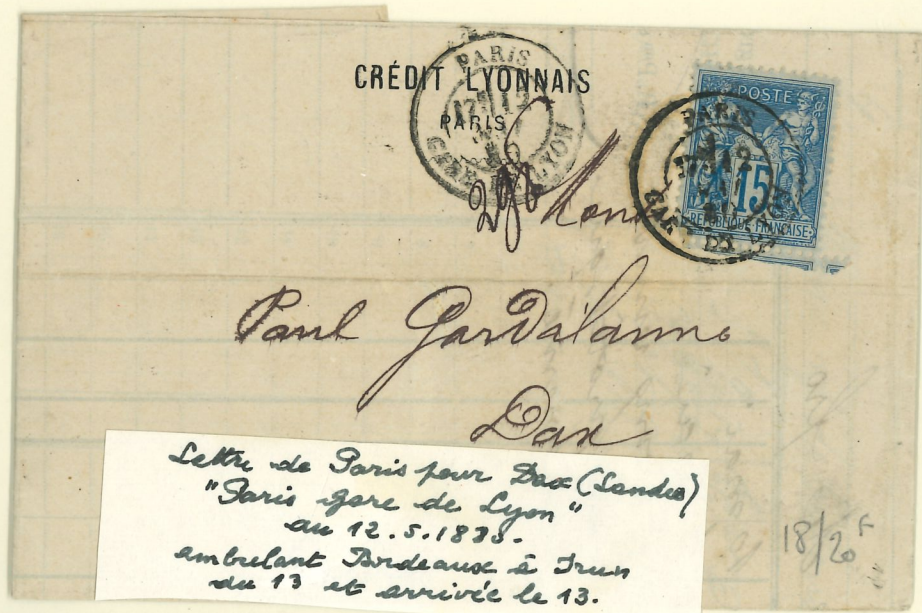 CRÉDIT LYONNAIS
PARIS
PARIS
GARE LYON
POSTE
15
RÉPUBLIQUE FRANÇAISE
PARIS
12
GARE DE
Paul Gardilanne
Dax
Lettre de Paris pour Dax (Landes)
"Paris gare de Lyon"
au 12.5.1880.
ambulant Bordeaux à Irun
du 13 et arrivée le 13.
18/20 F